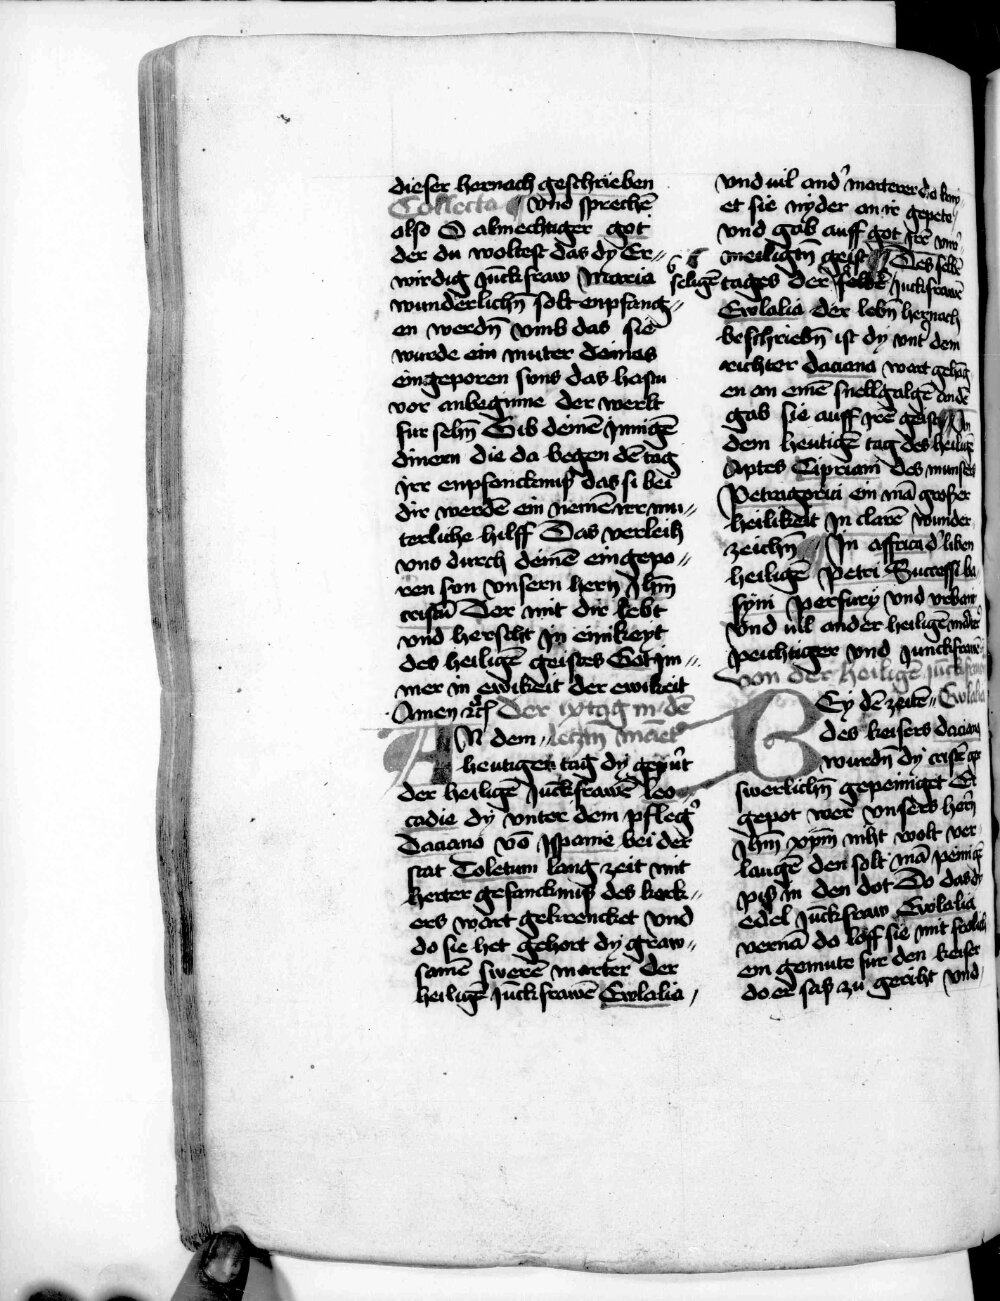 dieser hernach geschrieben
Collecta ¶ vnd sprechē
also O almechtiger got
der du woltest das dy Er⸗
wirdig Jūckfraw Maria
wunderlichn̄ solt enpfang⸗
en werdn̄ vmb das sie
wurde ein muter deines
eingeporen suns das hastu
vor anbeginne der werlt
fur sehn̄ Gib deinē Jnnigē
dinern die da begen dē tag
jrr enpfencknuß das si bei
dir werdē ein nemē irr mu⸗
terliche hilff Das verleih
vns durch deinē eingepo⸗
ren sun vnsern hern Jhm̄
cristū Der mit dir lebt
vnd herscht Jn einikeyt
des heiligē geistes Got im⸗
mer in ewikeit der ewikeit
Amen ⁊cꝭ Der ixtag in dē
AN dem leczn̄ maēt
heutigen tag dy gepūt
der heiligē Jūckfrawē Leo
cadie dy vnter dem pfleg͛
Daciano vō Jspanie bei der
stat Toletum lang zeit mit
herter gefancknuß des kerk⸗
ers wart gekrencket vnd
do sie het gehort dy graw⸗
samē swerē marter der
heiligē Jūckfrawē Ewlalia
vnd uil and͛ marterer
et sie nyder an ir gepete
vnd gab auff got jrē
meiligtn̄ geist ¶ Des selbē
seligē tages der selbē Juckfrawē
Ewlalia der lebn̄ hernach
beschriebn̄ ist dy vnt͛ dem
richter daciano wart gehāg
en an einē snellgalgē
gab sie auff jrē geist ¶ An
dem heutigē tag des heiligē
Aptes Cipriani des munsters
Petragorici ein mā großer
heilikeit Jn clarē wunder
zeichn̄ ¶ Jn affrica d͛ liben
heiligē Petri Successi ba
symi Perfurij vnd vrbani
vnd uil ander heiligē
peichtiger vnd Junckfrawē
von der heiligē Jūckfraw
BEy dē zeitē Ewlalia
des keisers daciani
wurdn̄ dy cristē gar
swerlichn̄ gepeiniget Er
gepot wer vnsers hern̄
Jhm̄ xpm̄ nicht wolt ver
laugē den solt mā peinigē
piß in den dot Do das dy
edel Jūckfraw Ewlalia
vernā do loff sie mit frolich
en gemute fur den keiser
do er saß zu gericht vnd